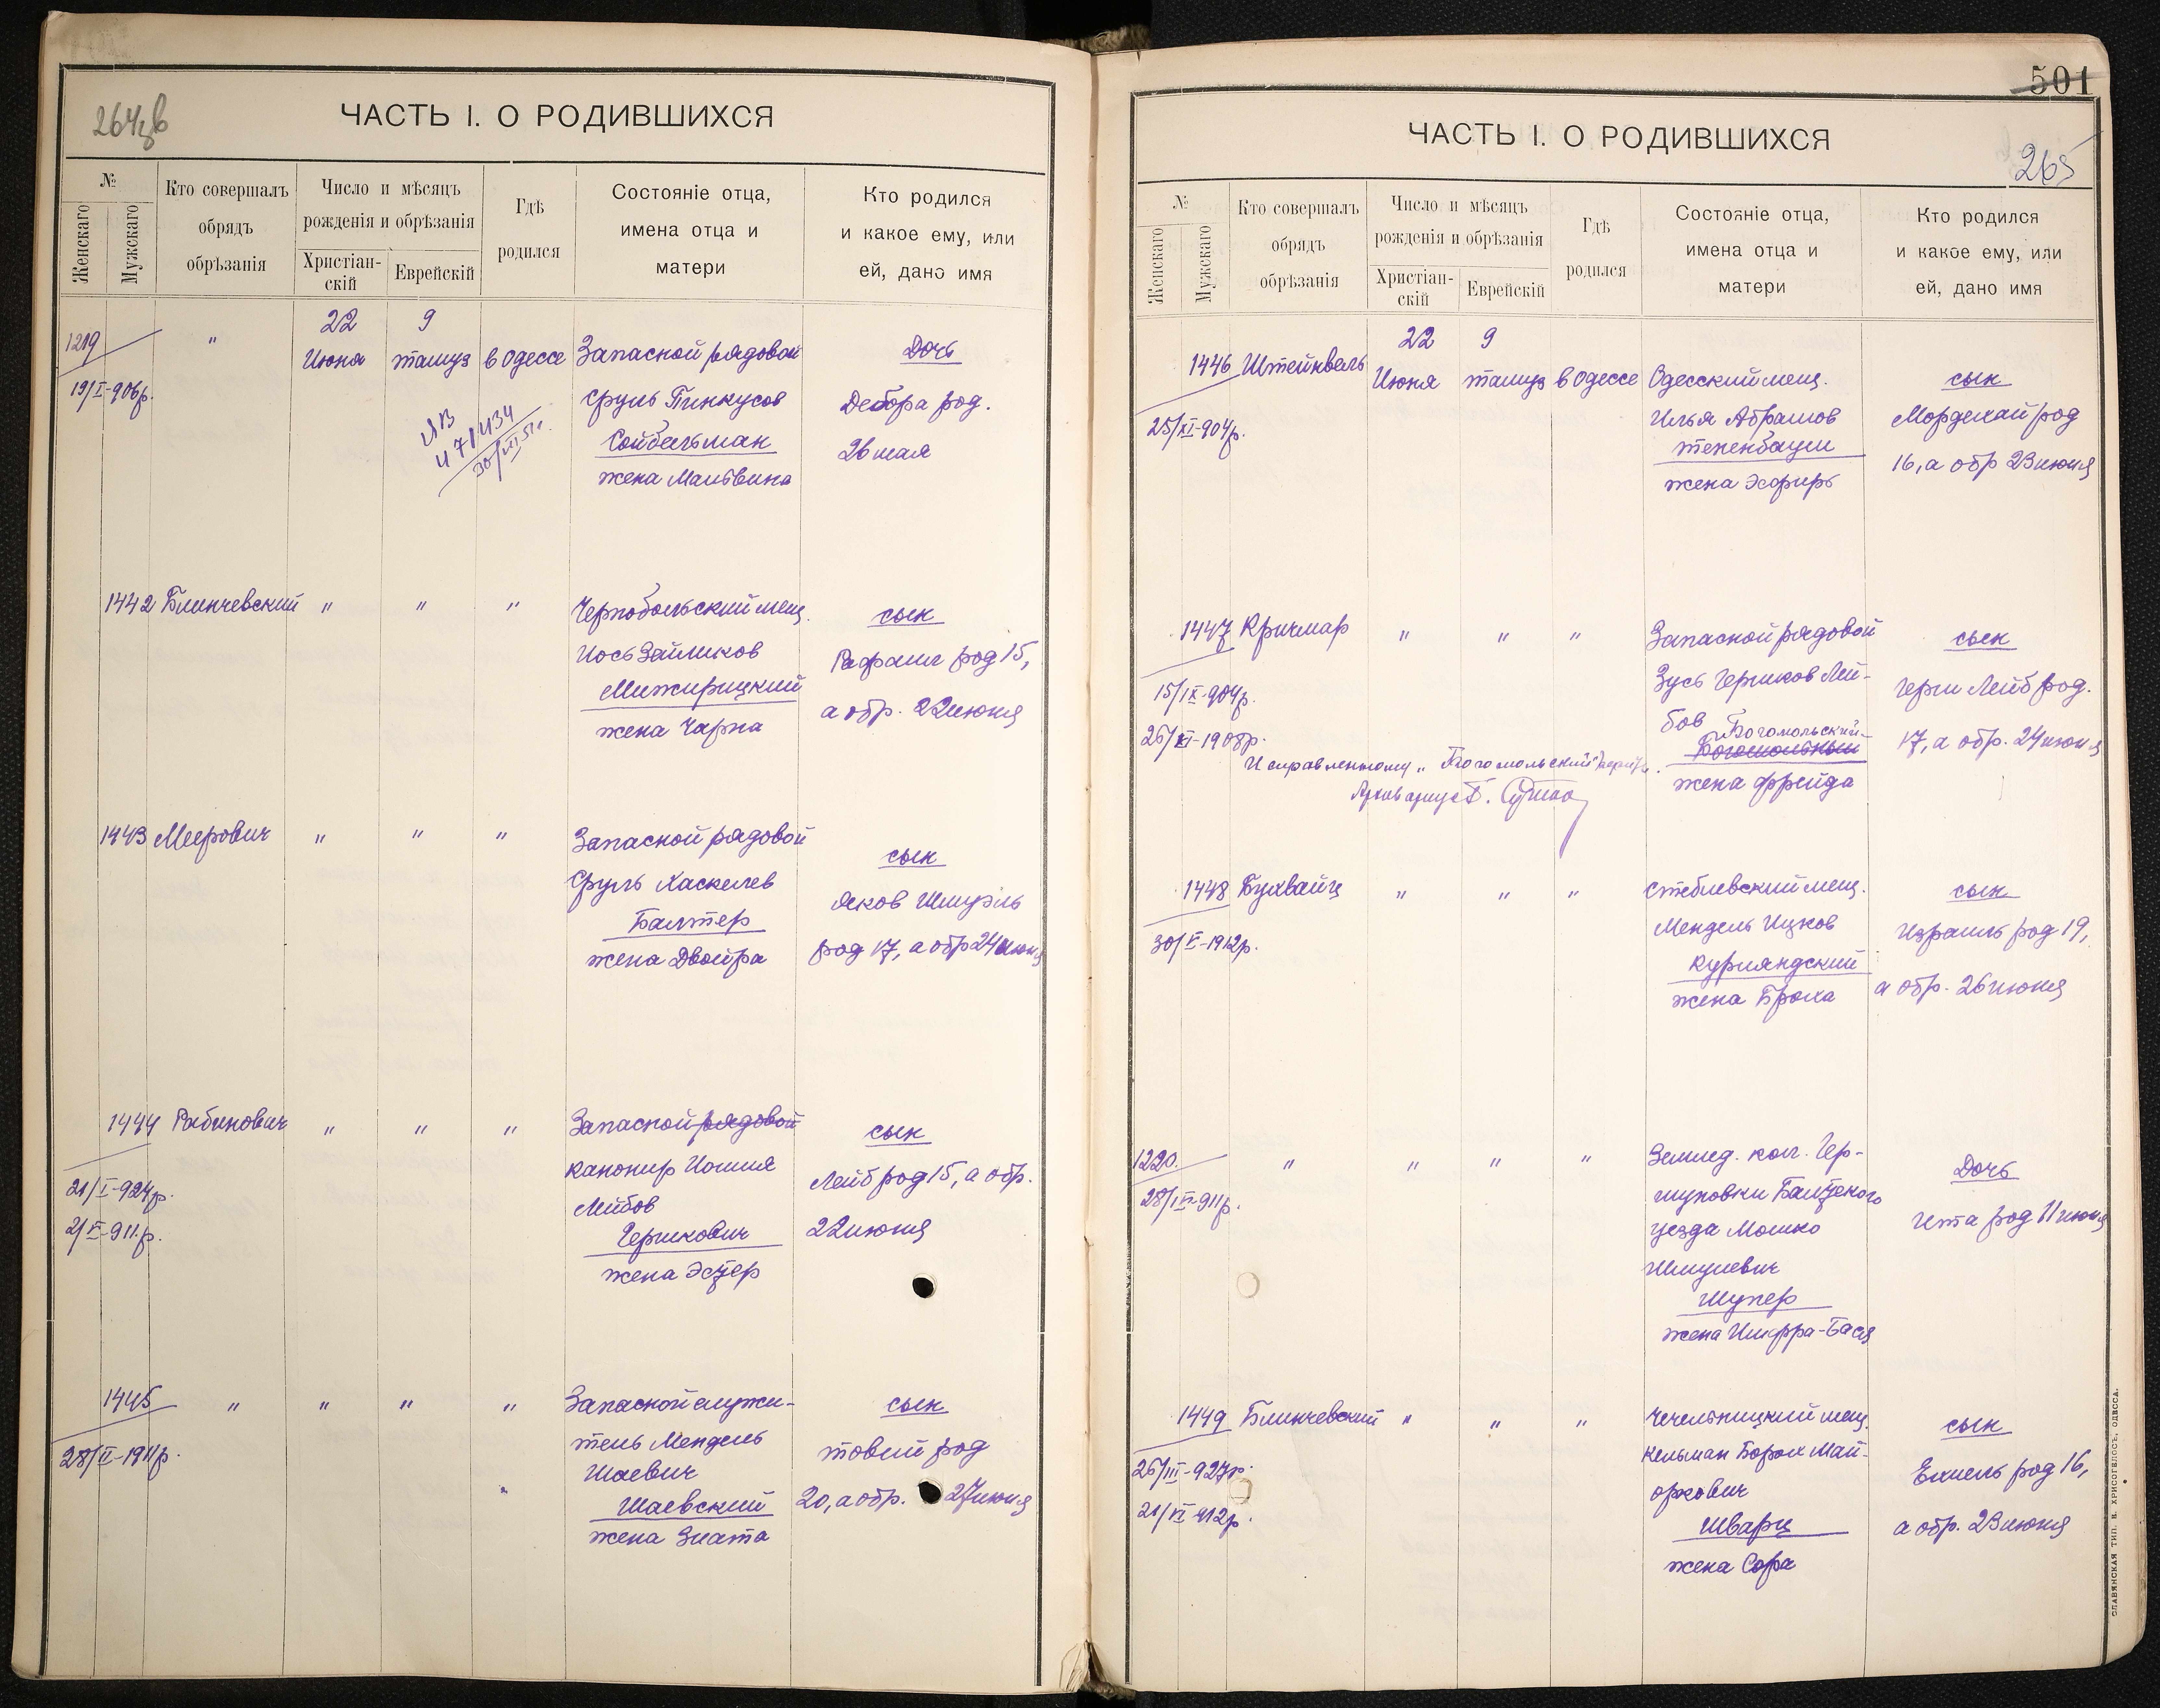 264зв
ЧАСТЬ I. О РОДИВШИХСЯ
№
Женскаго
Мужскаго
Кто совершалъ
обрядъ
обрѣзанія
Число и мѣсяцъ
рожденія и обрѣзанія
Христіан-
скій
Еврейскій
Гдѣ
родился
Состояніе отца,
имена отца и
матери
Кто родился
и какое ему, или
ей, дано имя
1219
19/I-906р.
"
22
Июня
9
тамуз
в Одессе
Запасной рядовой
Сруль Пинкусов
Сойбельман
жена Мальвина
Дочь
Дебора род.
26 мая
ЯВ
471434
30/VII 51г.
1442 Блинчевский " " "
Чернобольский мещ.
Иось Зайликов
Межирицкий
жена Чарна
сын
Рафаил род 15,
а обр. 22 июня
1443 Меерович " " "
Запасной рядовой
Сруль Хаскелев
Балтер
жена Двойра
сын
Яков Шмуэль
род 17, а обр 24 июня
1444 Рабинович " " "
21/I-924р.
2/V-911.р.
Запасной рядовой
канонир Иошия
Лейбов
Гершкович
жена Эстер
сын
Лейб род 15, а обр.
22 июня
1445 " " " "
28/II-1911р.
Запасной служи-
тель Мендель
Шаевич
Шаевский
жена Злата
сын
товий род
20, а обр. 27 июня
501
265
ЧАСТЬ I. О РОДИВШИХСЯ
№
Женскаго
Мужскаго
Кто совершалъ
обрядъ
обрѣзанія
Число и мѣсяцъ
рожденія и обрѣзанія
Христіан-
скій
Еврейскій
Гдѣ
родился
Состояніе отца,
имена отца и
матери
Кто родился
и какое ему, или
ей, дано имя
1446 Штейнвель
25/XI-904р.
22
Июня
9
тамуз
в Одессе
Одесский мещ.
Илья Абрамов
тененбаум
жена Эсфирь
сын
Мордехай род
16, а обр 23 июня
1447 Кричмар " " "
15/IX-904р.
26/XI-1908р.
Запасной рядовой
Зусь Гершков Лей-
бов Богомольский
Богомольный
жена Фрейда
сын
Герш Лейб род.
17, а обр. 24 июня
Исправленному „Богомольский" верить.
Архивариус Б.
1448 Бухвайц " " "
30/V-1912р.
Стеблевский мещ.
Мендель Ицков
Курляндский
жена Броха
сын
Израиль род 19,
а обр. 26 июня
1220. " " " "
28/IV-911р.
Землед. кол. Гер-
шуновки Балтского
уезда Мошко
Шмулевич
Шупер
жена Шифра-Бася
Дочь
Чета род 11 июня
1449 Блинчевский " " "
26/III-927р.
21/VI-912р.
Чечельницкий мещ.
Кельман Борох Май-
орхович
Шварц
жена Сора
сын
Ехиель род 16,
а обр. 23 июня
СЛАВЯНСКАЯ ТИП. Н. ХРИСОГЕЛОСЪ, ОДЕССА.